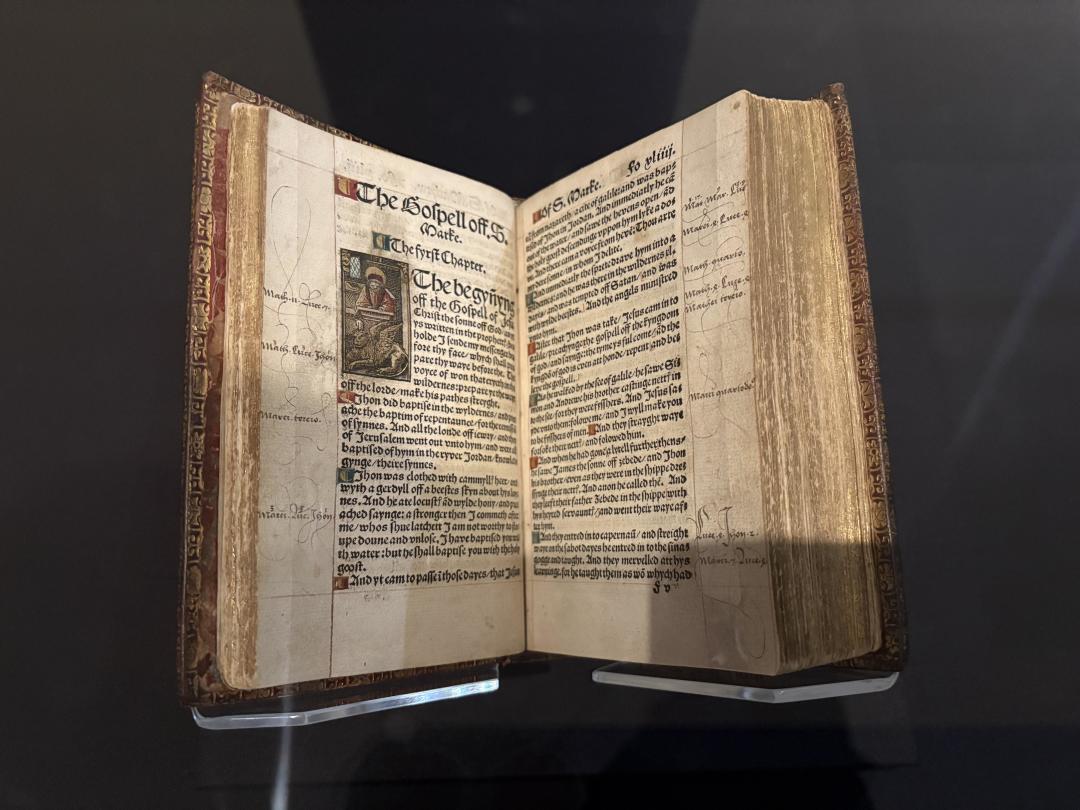 The Gospell off. S.
Marke.
The fyrst Chapter.
The begynnynge
off the Gospell of Jesu
Christ the sonne off God
ys written in the prophet
holde I sende my messenger
fore thy face/ whych shall
pare thy waye before the.
voyce of won that cryeth
wildernes: prepare ye the
off the lorde/ make his pathes streyght.
Jhon did baptise in the wyldernes/ and
ache the baptim of repentaunce/ for the
of synnes. And all the londe off iewry/ and
of Jerusalem went out vnto hym/ and were all
baptised of hym in the ryver Jordan/
gynge theire synnes.
Jhon was clothed with cammyll heer/
wyth a gerdyll off a beestes skyn about hys
nes. And he ate locust ād wylde hony/ and
ached saynge: a stronger then I commeth after
me/ whos shue latchett I am not worthy to
upe doune and vnlose. I have baptised you
th water: but he shall baptise you with the holy
goost.
And yt cam to passe ī those dayes/ that Jesus
Off S. Marke. Fo xliiij.
from nazareth/ a cite of galile: and was bap-
tised of Jhon in Jordan. And immediatly he cā
of the water/ and sawe the hevens open/ ād
the holy goost descendinge vppon hym lyke a dove
And there cam a voyce from heven: Thou arte
my dere sonne/ in whom I delite.
And immediatly the sprete drave hym into a
wildernes: and he was there in the wildernes
dayes/ and was tempted off Satan/ and was
with wylde beestes. And the angels ministred
vnto hym.
After that Jhon was takē/ Jesus cam in to
galile/ preachynge the gospell off the kyngdom
of god/ and saynge: the tyme ys full come/ ād the
kyngdō of god is even att honde/ repent/ and be
leve the gospell.
As he walked by the see of galile/ he sawe
mon and Andrew his brother castinge nett in
to the see/ for they were fysshers. And Jesus
sayde vnto them: folowe me/ and I wyll make you
to be fysshers of men. And they strayght waye
forsoke their nett/ and folowed him.
And when he had gone a lytell further thens/
he sawe James the sonne off zebede/ and Jhon
his brother/ even as they were in the shippe
their nett. And anon he called thē. And
they left their father Zebede in the shippe with
hys hyred servaunt/ and went their waye
ter hym.
And they entred in to capernaū/ and streight
waye on the sabot dayes he entred in to the sina
gogge and taught. And they mervelled att hys
learninge. for he taught them as wō whych had
F v
Math. quarto.
Marci. tercio.